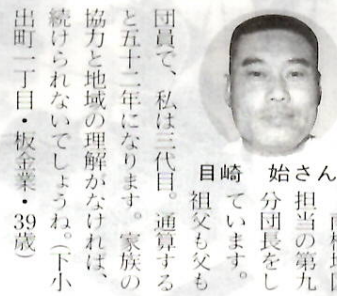 目崎 始さん
担当の第九
分団長をし
ています。
祖父も父も
団員で、私は三代目。通算する
と五十二年になります。家族の
協力と地域の理解がなければ、
続けられないでしょうね。(下小
出町一丁目・板金業・39歳)